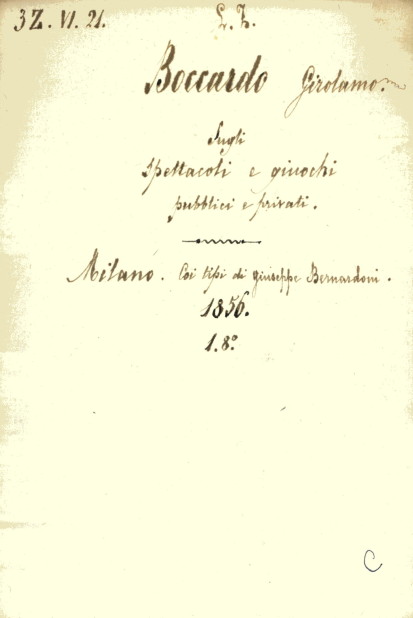 3Z. VI. 21.
Boccardo Girolamo.
Sugli
spettacoli e giuochi
pubblici e privati.
Milano. Coi tipi di Giuseppe Bernardoni.
1856.
1.8º
C